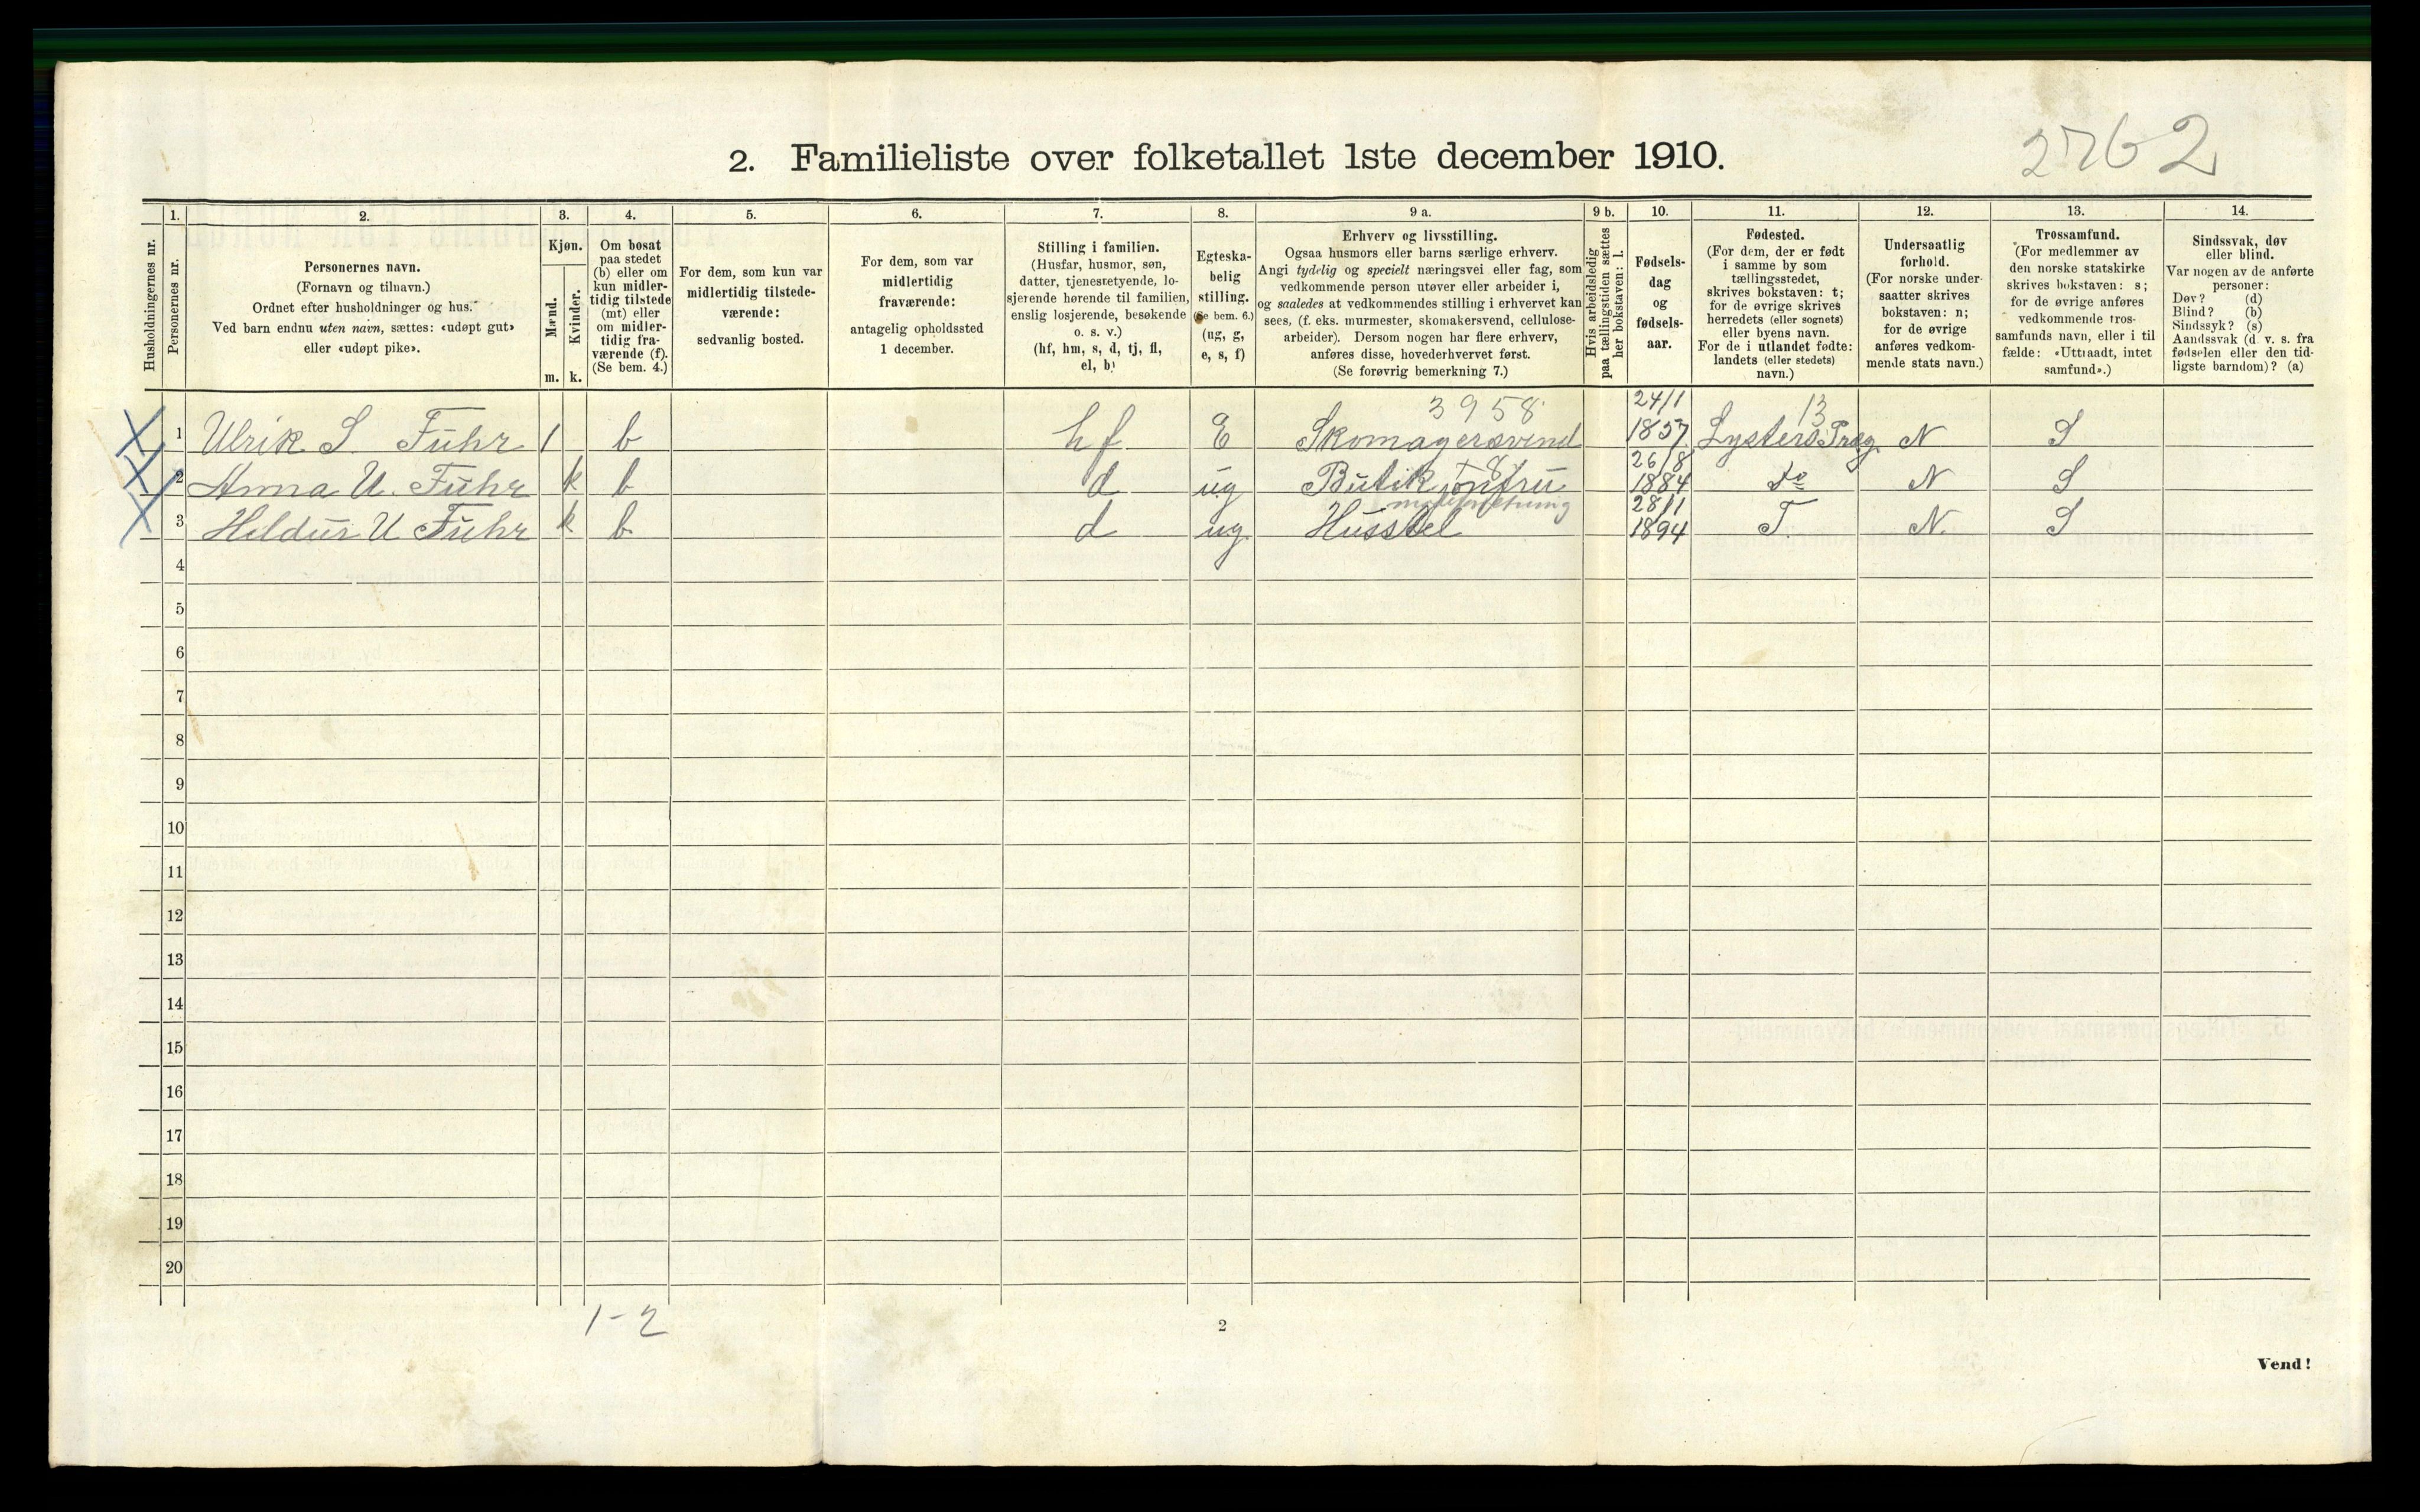 2762
2. Familieliste over folketallet 1ste december 1910.
1. 2. 3. 4. 5. 6. 7. 8. 9 a. 9 b. 10. 11. 12. 13. 14.
Husholdningernes nr.
Personernes nr.
Personernes navn.
(Fornavn og tilnavn.)
Ordnet efter husholdninger og hus.
Ved barn endnu uten navn, sættes: «udøpt gut»
eller «udøpt pike».
Kjøn.
Mænd.
Kvinder.
m. k.
Om bosat
paa stedet
(b) eller om
kun midler-
tidig tilstede
(mt) eller
om midler-
tidig fra-
værende (f).
(Se bem. 4.)
For dem, som kun var
midlertidig tilstede-
værende:
sedvanlig bosted.
For dem, som var
midlertidig
fraværende:
antagelig opholdssted
1 december.
Stilling i familien.
(Husfar, husmor, søn,
datter, tjenestetyende, lo-
sjerende hørende til familien,
enslig losjerende, besøkende
o. s. v.)
(hf, hm, s, d, tj, fl,
el, b)
Egteska-
belig
stilling.
(Se bem. 6.)
(ug, g,
e, s, f)
Erhverv og livsstilling.
Ogsaa husmors eller barns særlige erhverv.
Angi tydelig og specielt næringsvei eller fag, som
vedkommende person utøver eller arbeider i,
og saaledes at vedkommendes stilling i erhvervet kan
sees, (f. eks. murmester, skomakersvend, cellulose-
arbeider). Dersom nogen har flere erhverv,
anføres disse, hovederhvervet først.
(Se forøvrig bemerkning 7.)
Hvis arbeidsledig
paa tællingstiden sættes
her bokstaven: l.
Fødsels-
dag
og
fødsels-
aar.
Fødested.
(For dem, der er født
i samme by som
tællingsstedet,
skrives bokstaven: t;
for de øvrige skrives
herredets (eller sognets)
eller byens navn.
For de i utlandet fødte:
landets (eller stedets)
navn.)
Undersaatlig
forhold.
(For norske under-
saatter skrives
bokstaven: n;
for de øvrige
anføres vedkom-
mende stats navn.)
Trossamfund.
(For medlemmer av
den norske statskirke
skrives bokstaven: s;
for de øvrige anføres
vedkommende tros-
samfunds navn, eller i til
fælde: «Uttraadt, intet
samfund».)
Sindssvak, døv
eller blind.
Var nogen av de anførte
personer:
Døv? (d)
Blind? (b)
Sindssyk? (s)
Aandssvak (d. v. s. fra
fødselen eller den tid-
ligste barndom)? (a)
3958 24/1 13
1 Ulrik S. Fuhr 1 b hf E Skomagersvend 1857 Lysters Præg. N S
26/8
2 Anna U. Fuhr k b d ug Butikjomfru 1884 Do N S
28/1
3 Heldur U Fuhr k b d ug Husstel 1894 T. N. S
4
5
6
7
8
9
10
11
12
13
14
15
16
17
18
19
20
1-2
2
Vend!